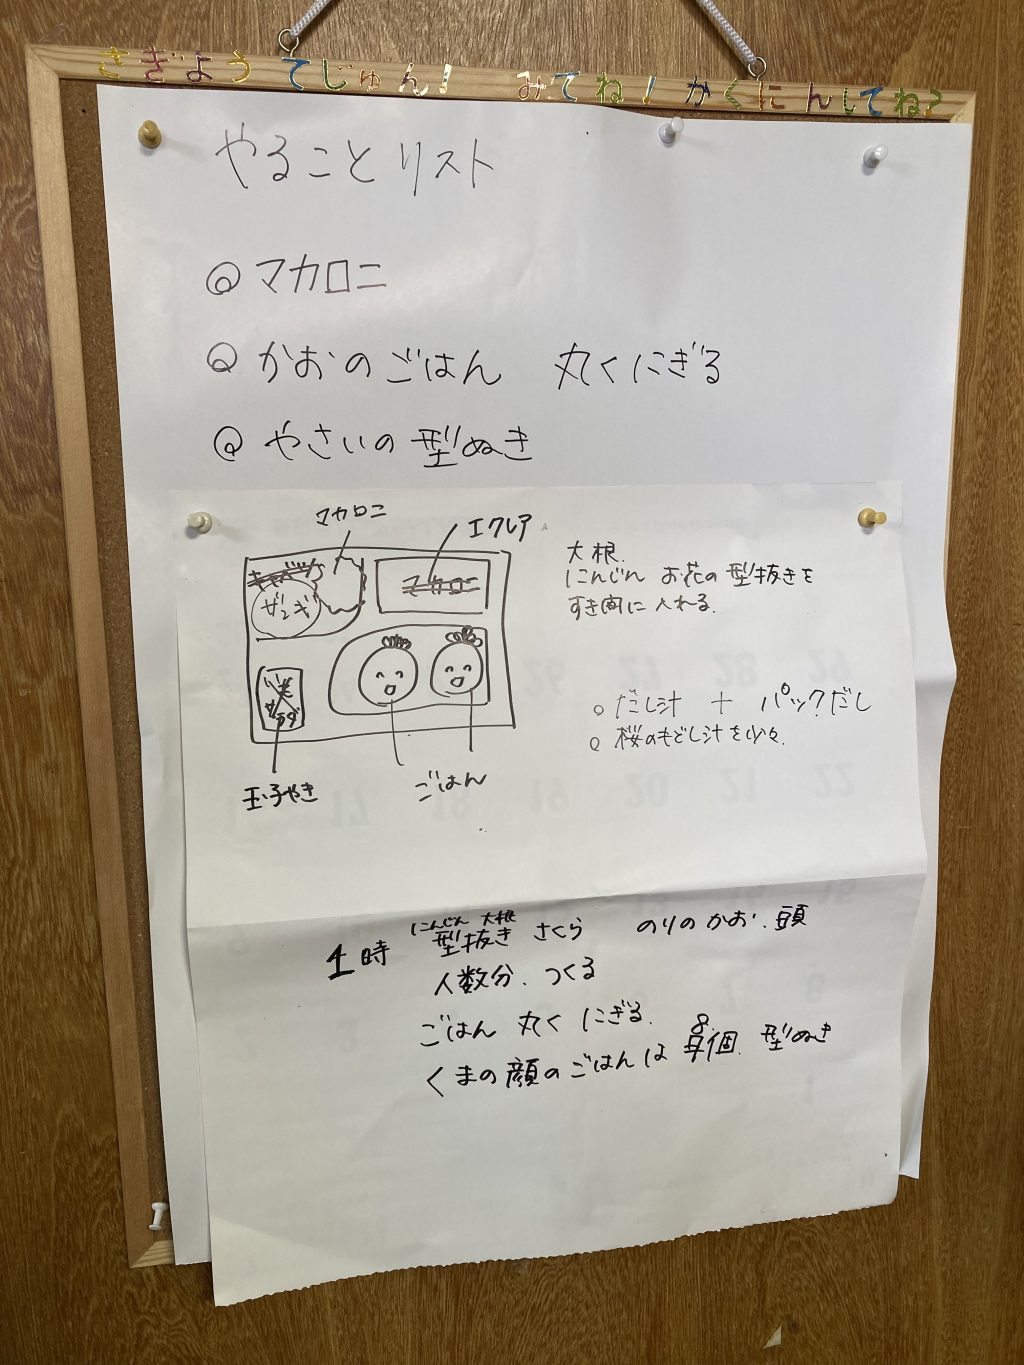 さぎょうてじゅん！ みてね！かくにんしてね？
やることリスト
◎マカロニ
◎かおのごはん 丸くにぎる
◎やさいの型ぬき
マカロニ
エクレア
キャベツ
ザンギ
マカロニ
いも
サラダ
玉子やき
ごはん
大根
にんじん お花の型抜きを
すき間に入れる.
○だし汁 + パックだし
○桜のもどし汁を少々.
にんじん 大根
1時 型抜き さくら のりのかお.頭
人数分.つくる
ごはん 丸く にぎる.
8
くまの顔のごはんは 個.型ぬき